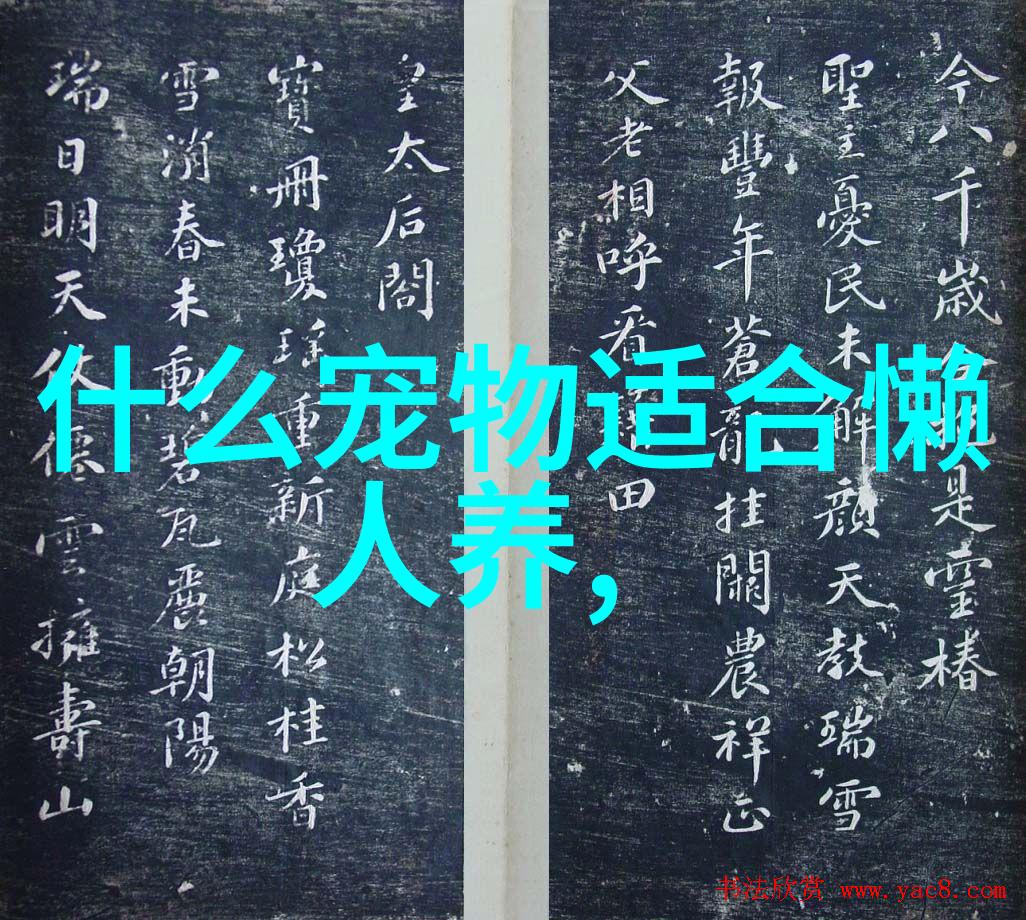 什么宠物适合懒
人养，
今八千歲是靈椿
聖主憂民未解顏天教瑞雪
報豐年蒼龍挂闕農祥正
父老相呼看田
皇太后閤
寶冊瓊瑤重新庭松桂香
雪消春未動碧瓦麗朝陽
瑞日明天仗德雲擁壽山
书法欣赏 www.yac8.com